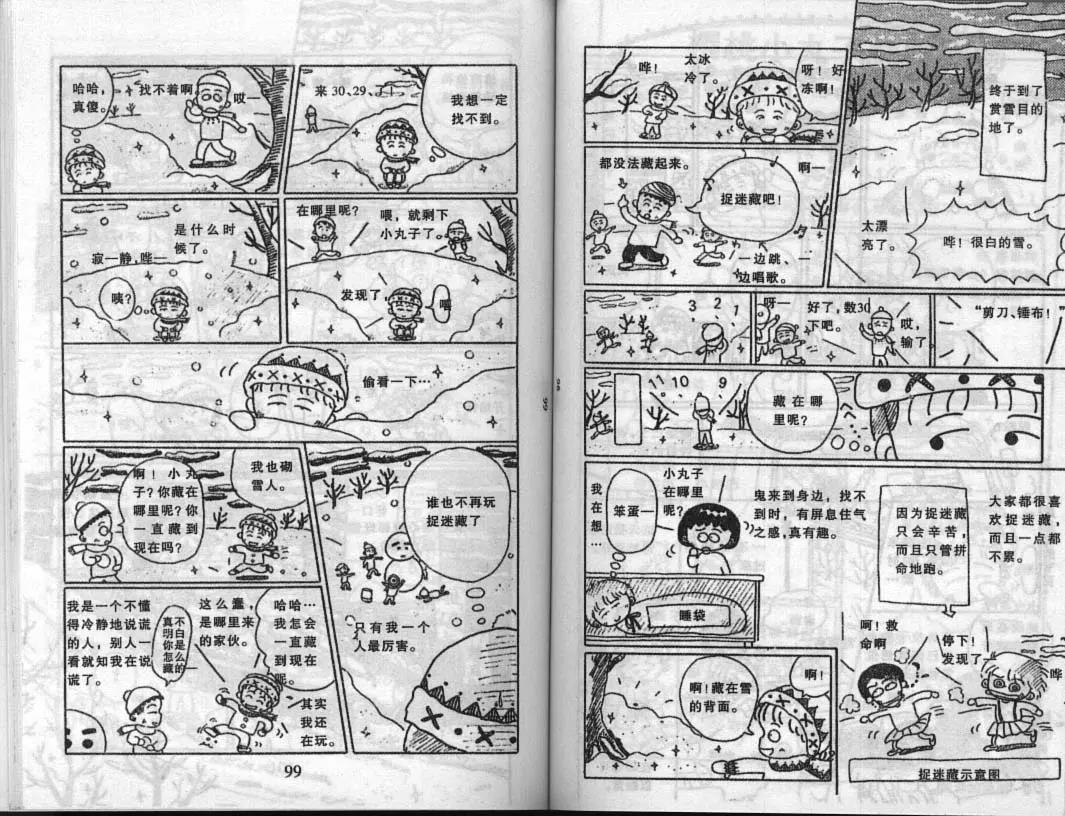 终于到了
赏雪目的
地了。
太漂
亮了。
哗！很白的雪。
呀！好
冻啊！
太冰
冷了。
哗！
啊一
捉迷藏吧！
都没法藏起来。
一边跳、一
边唱歌。
“剪刀、锤布！”
哎，
输了。
好了，数30
下吧。
呀一
1
2
3
藏在哪
里呢？
9
10
11
大家都很喜
欢捉迷藏，
而且一点都
不累。
因为捉迷藏
只会辛苦，
而且只管拼
命地跑。
鬼来到身边，找不
到时，有屏息住气
之感，真有趣。
小丸子
在哪里
呢？
笨蛋一
我在想…
睡袋
停下！
发现了
哗
呵！救
命啊
捉迷藏示意图
啊！
啊！藏在雪
的背面。
我想一定
找不到。
来30、29、了个
找不着啊。
哎一
哈哈，
真傻。
喂，就剩下
小丸子了。
在哪里呢？
发现了，
喂
是什么时
候了。
寂一静，哗一
咦？
偷看一下…
谁也不再玩
捉迷藏了
只有我一个
人最厉害。
我也砌
雪人。
啊！小丸
子？你藏在
哪里呢？你
一直藏到
现在吗？
哈哈…
我怎会
一直藏
到现在
呢。
其实
我还
在玩。
这么蠢，
是哪里来
的家伙。
不白是么的
真明你怎藏
我是一个不懂
得冷静地说谎
的人，别人一
看就知我在说
谎了。
99